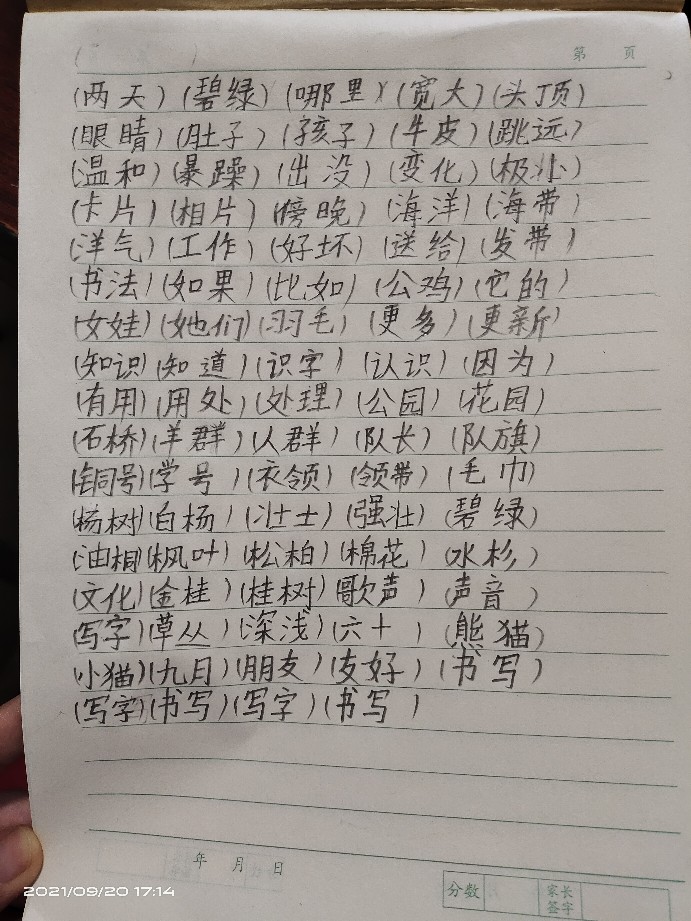 第 页
(两天)(碧绿)(哪里)(宽大)(头顶)
(眼睛)(肚子)(孩子)(牛皮)(跳远)
(温和)(暴躁)(出没)(变化)(极)
(卡片)(相片)(傍晚)(海洋)(海带)
(洋气)(工作)(好坏)(送给)(发带)
(书法)(如果)(比如)(公鸡)(它的)
(女娃)(她们)(羽毛)(更多)(更新)
(知识)(知道)(识字)(认识)(因为)
(有用)(用处)(处理)(公园)(花园)
(石桥)(羊群)(人群)(队长)(队旗)
(铜号)(学号)(衣领)(领带)(毛巾)
(杨树)(白杨)(壮士)(强壮)(碧绿)
(油桐)(枫叶)(松柏)(棉花)(水杉)
(文化)(金桂)(桂树)(歌声)(声音)
(写字)(草丛)(深浅)(六十)(熊猫)
(小猫)(九月)(朋友)(友好)(书写)
(写字)(书写)(写字)(书写)
年 月 日
分数 家长签字
2021/09/20 17:14